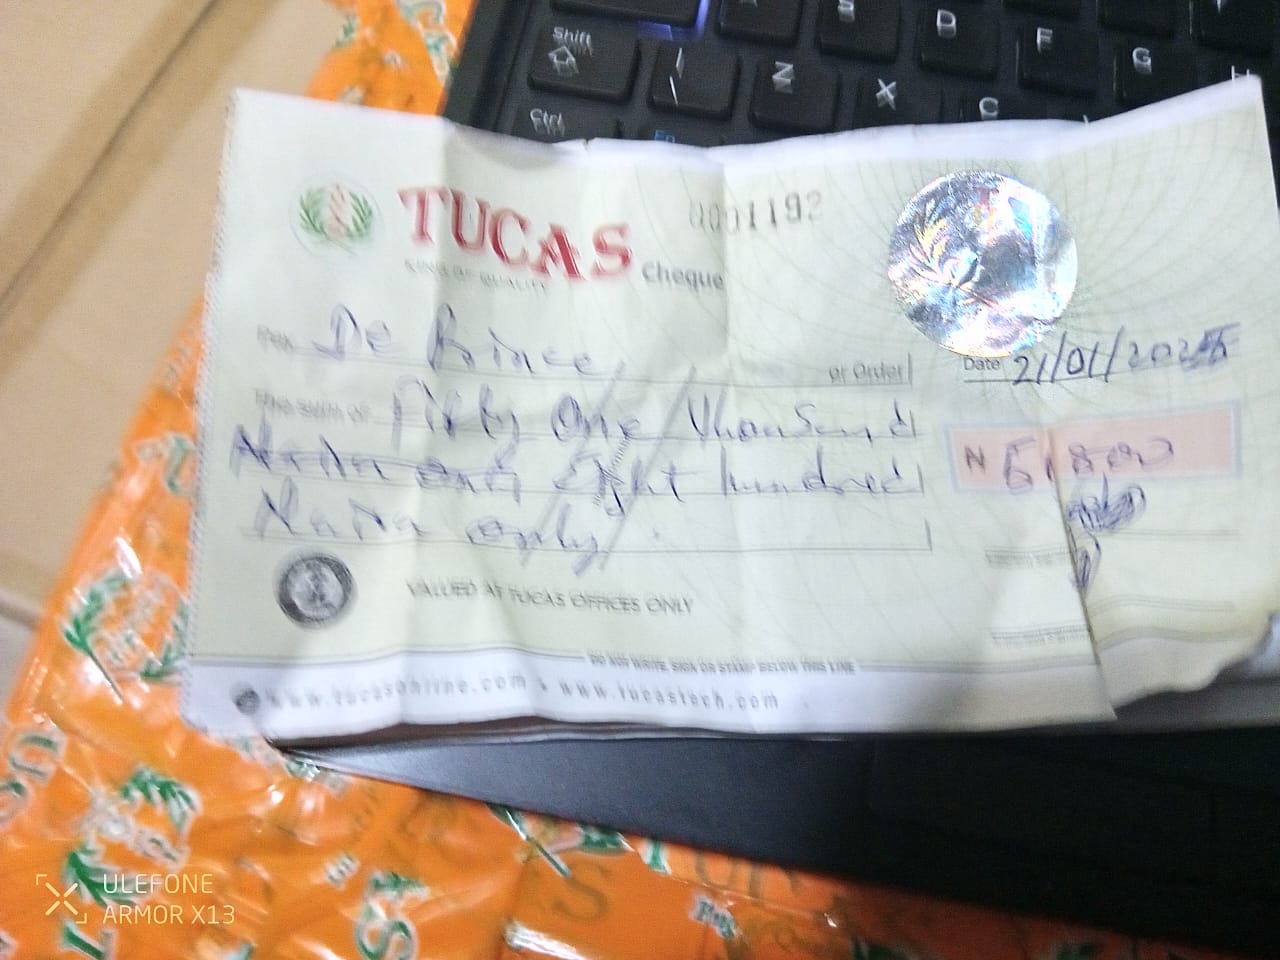 Shift
S
D
F
G
Z
X
C
Ctrl
TUCAS
0001192
KING OF QUALITY
Cheque
Pay De Prince
or Order
Date 21/01/2025
The sum of Fifty One Thousand
Naira only Eight hundred
Naira only.
N 51800
VALUED AT TUCAS OFFICES ONLY
DO NOT WRITE, SIGN OR STAMP BELOW THIS LINE
www.tucasonline.com www.tucastech.com
ULEFONE
ARMOR X13